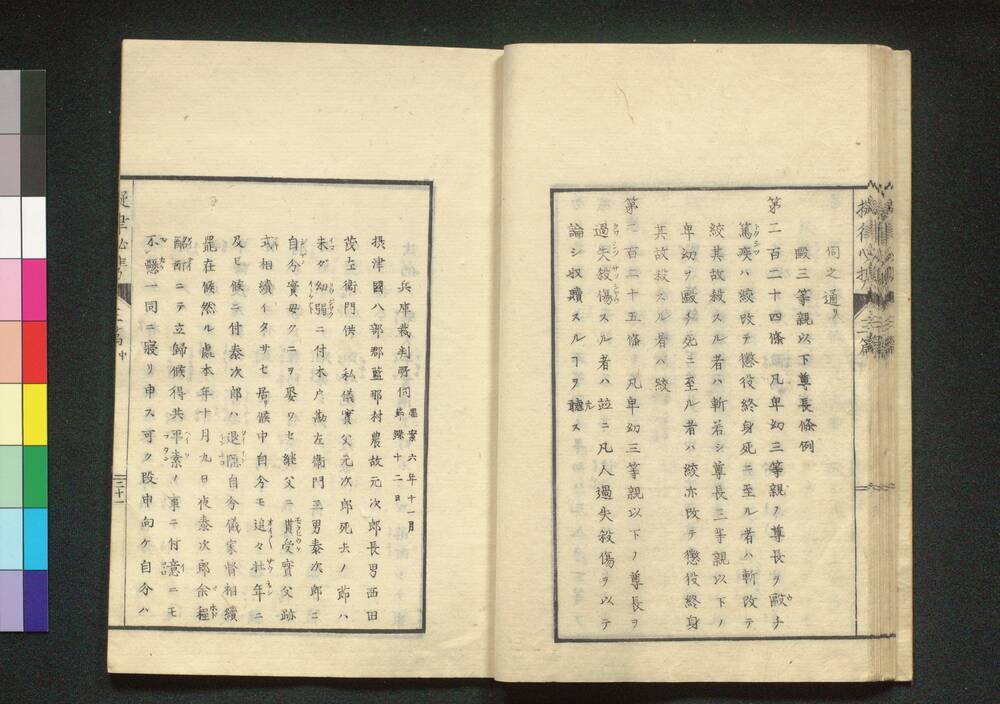 伺之通リ
毆三等親以下尊長條例
第二百二十四條 凡卑幼三等親ノ尊長ヲ毆チ
篤疾ハ絞改テ懲役終身死ニ至ル者ハ斬改テ
絞其故殺スル者ハ斬若シ尊長三等親以下ノ
卑幼ヲ毆チ死ニ至ル者ハ絞亦改テ懲役終身
其故殺スル者ハ絞
第二百二十五條 凡卑幼三等親以下ノ尊長ヲ
過失殺傷スル者ハ竝ニ凡人過失殺傷ヲ以テ
論シ収贖スルヿヲ聽ス
兵庫裁判所伺
六年十一月
十二日
攝津國八部郡藍那村農故元次郎長男西田
茂左衞門供 私儀實父元次郎死去ノ節ハ
未タ幼弱ニ付本戸勘左衞門三男泰次郎ニ
自分實母クニヲ娶ワセ継父ニ貰受實父跡
式相續イタサセ居候中自分モ追々壮年ニ
及ヒ候ニ付泰次郎ハ退隠自分儀家督相續
罷在候然ル處本年十月九日夜泰次郎余程
酩酊ニテ立歸候得共平素ノ事ニ付意ニモ
不懸一同ニ寢リ申ス可ク段申向ケ自分ハ